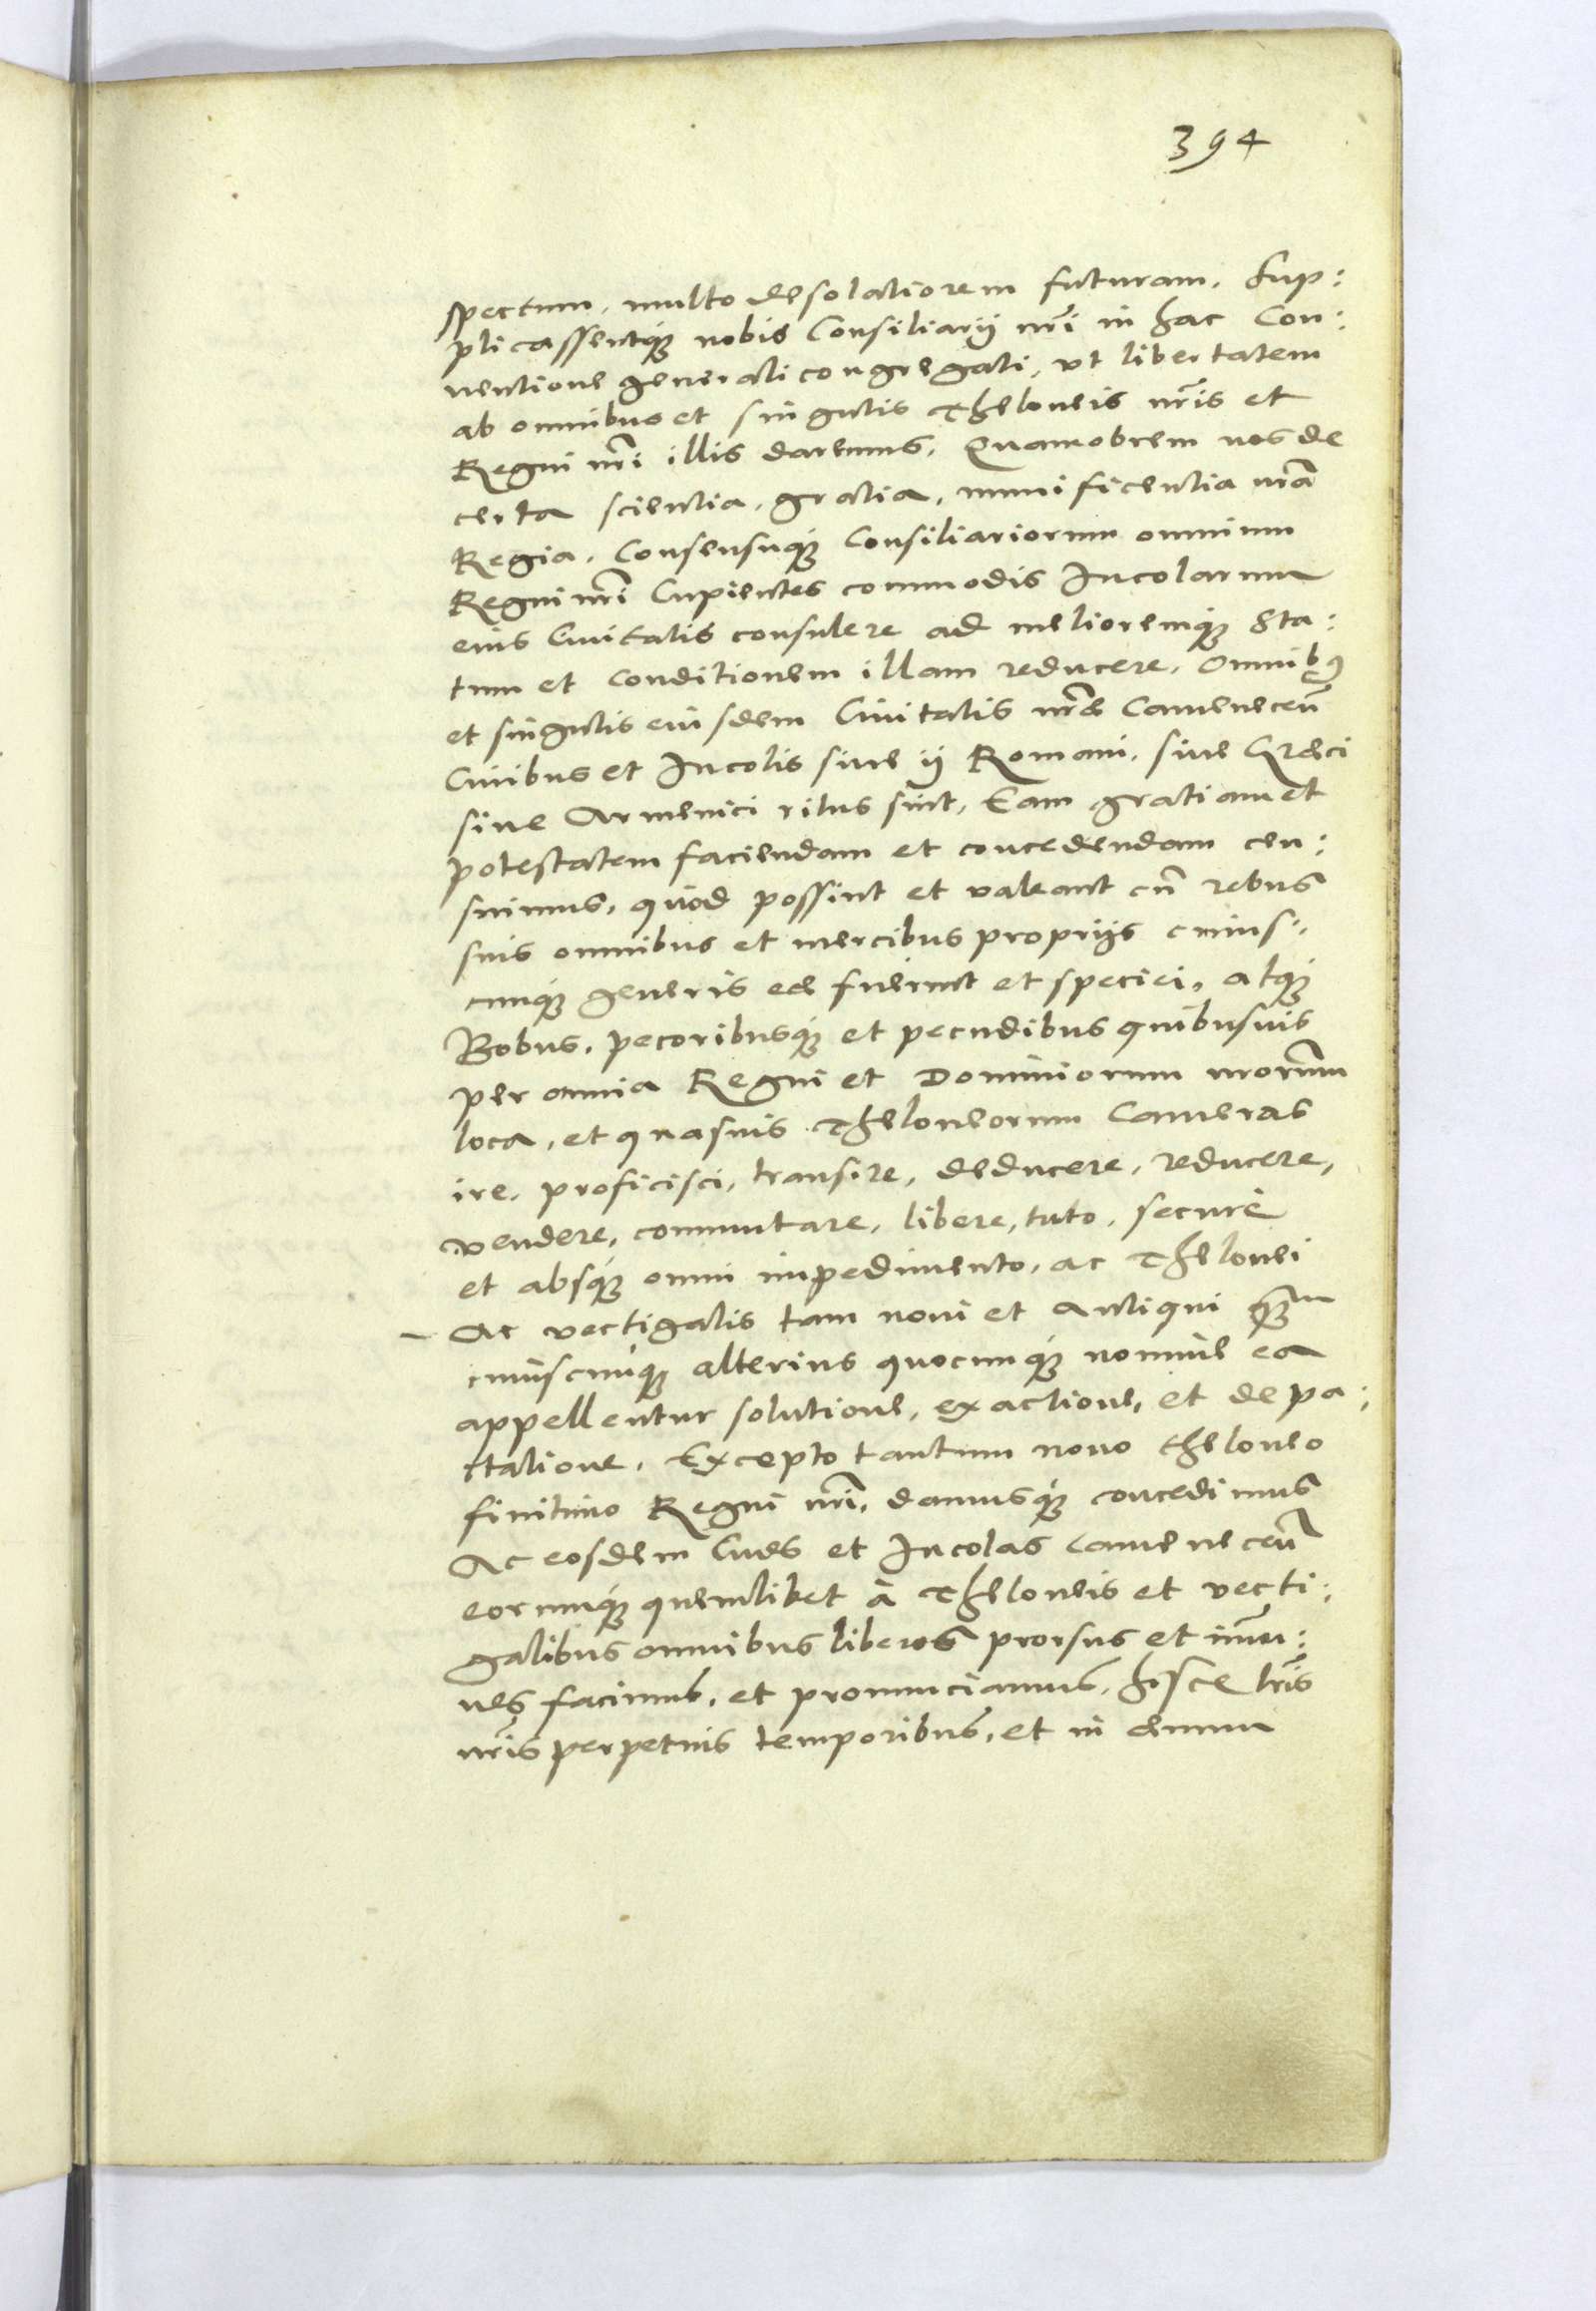 394
spectum, multo desolatiorem futuram, Sup:
plicassentq́ꝫ nobis Consiliarij nr̃i in hac Con:
uentione generali congregati, vt libertatem
ab omnibus et singulis Theloneis nr̃is et
Regni nr̃i illis daremus, Quamobrem nos de
certa scientia, gratia, munificentia nr̃a
Regia, Consensuq́ꝫ Consiliariorum omnium
Regni nr̃i Cupientes commodis Incolarum
eius Ciuitatis consulere ad melioremq́ꝫ sta:
tum et conditionem illam reducere, omnibꝰ
et singulis eiusdem Ciuitatis nr̃e Camenecen̄
Ciuibus et Incolis siue ij Romani, siue Greci
siue Armenici ritus sint, Eam gratiam et
potestatem faciendam et concedendam cen:
suimus, quod possint et valeant cū rebus
suis omnibus et mercibus proprijs cuius:
cunq́ꝫ generis ee fuerint et speciei, atq́ꝫ
Bobus, pecoribusq́ꝫ et pecudibus quibusuis
per omnia Regni et Dominiorum nrorum̄
loca, et quasuis Theloneorum Cameras
ire, proficisci, transire, deducere, reducere,
vendere, commutare, libere, tuto, securè
et absq́ꝫ omni impedimento, ac Thelonei
Ac vectigalis tam noui et Antiqui q̃ꝫm
cuiuscunq́ꝫ alterius quocunq́ꝫ nomine ea
appellentur solutione, exactione, et depa:
ctatione, Excepto tantum nouo theloneo
finitimo Regni nr̃i, damusq́ꝫ concedimus
Ac eosdem Ciues et Incolas Camenecen̄
eorumq́ꝫ quemlibet à Theloneis et vecti:
galibus omnibus liberos prorsus et im̄u:
nes facimus, et pronunciamus, hisce lr̃is
nr̃is perpetuis temporibus, et in æuum